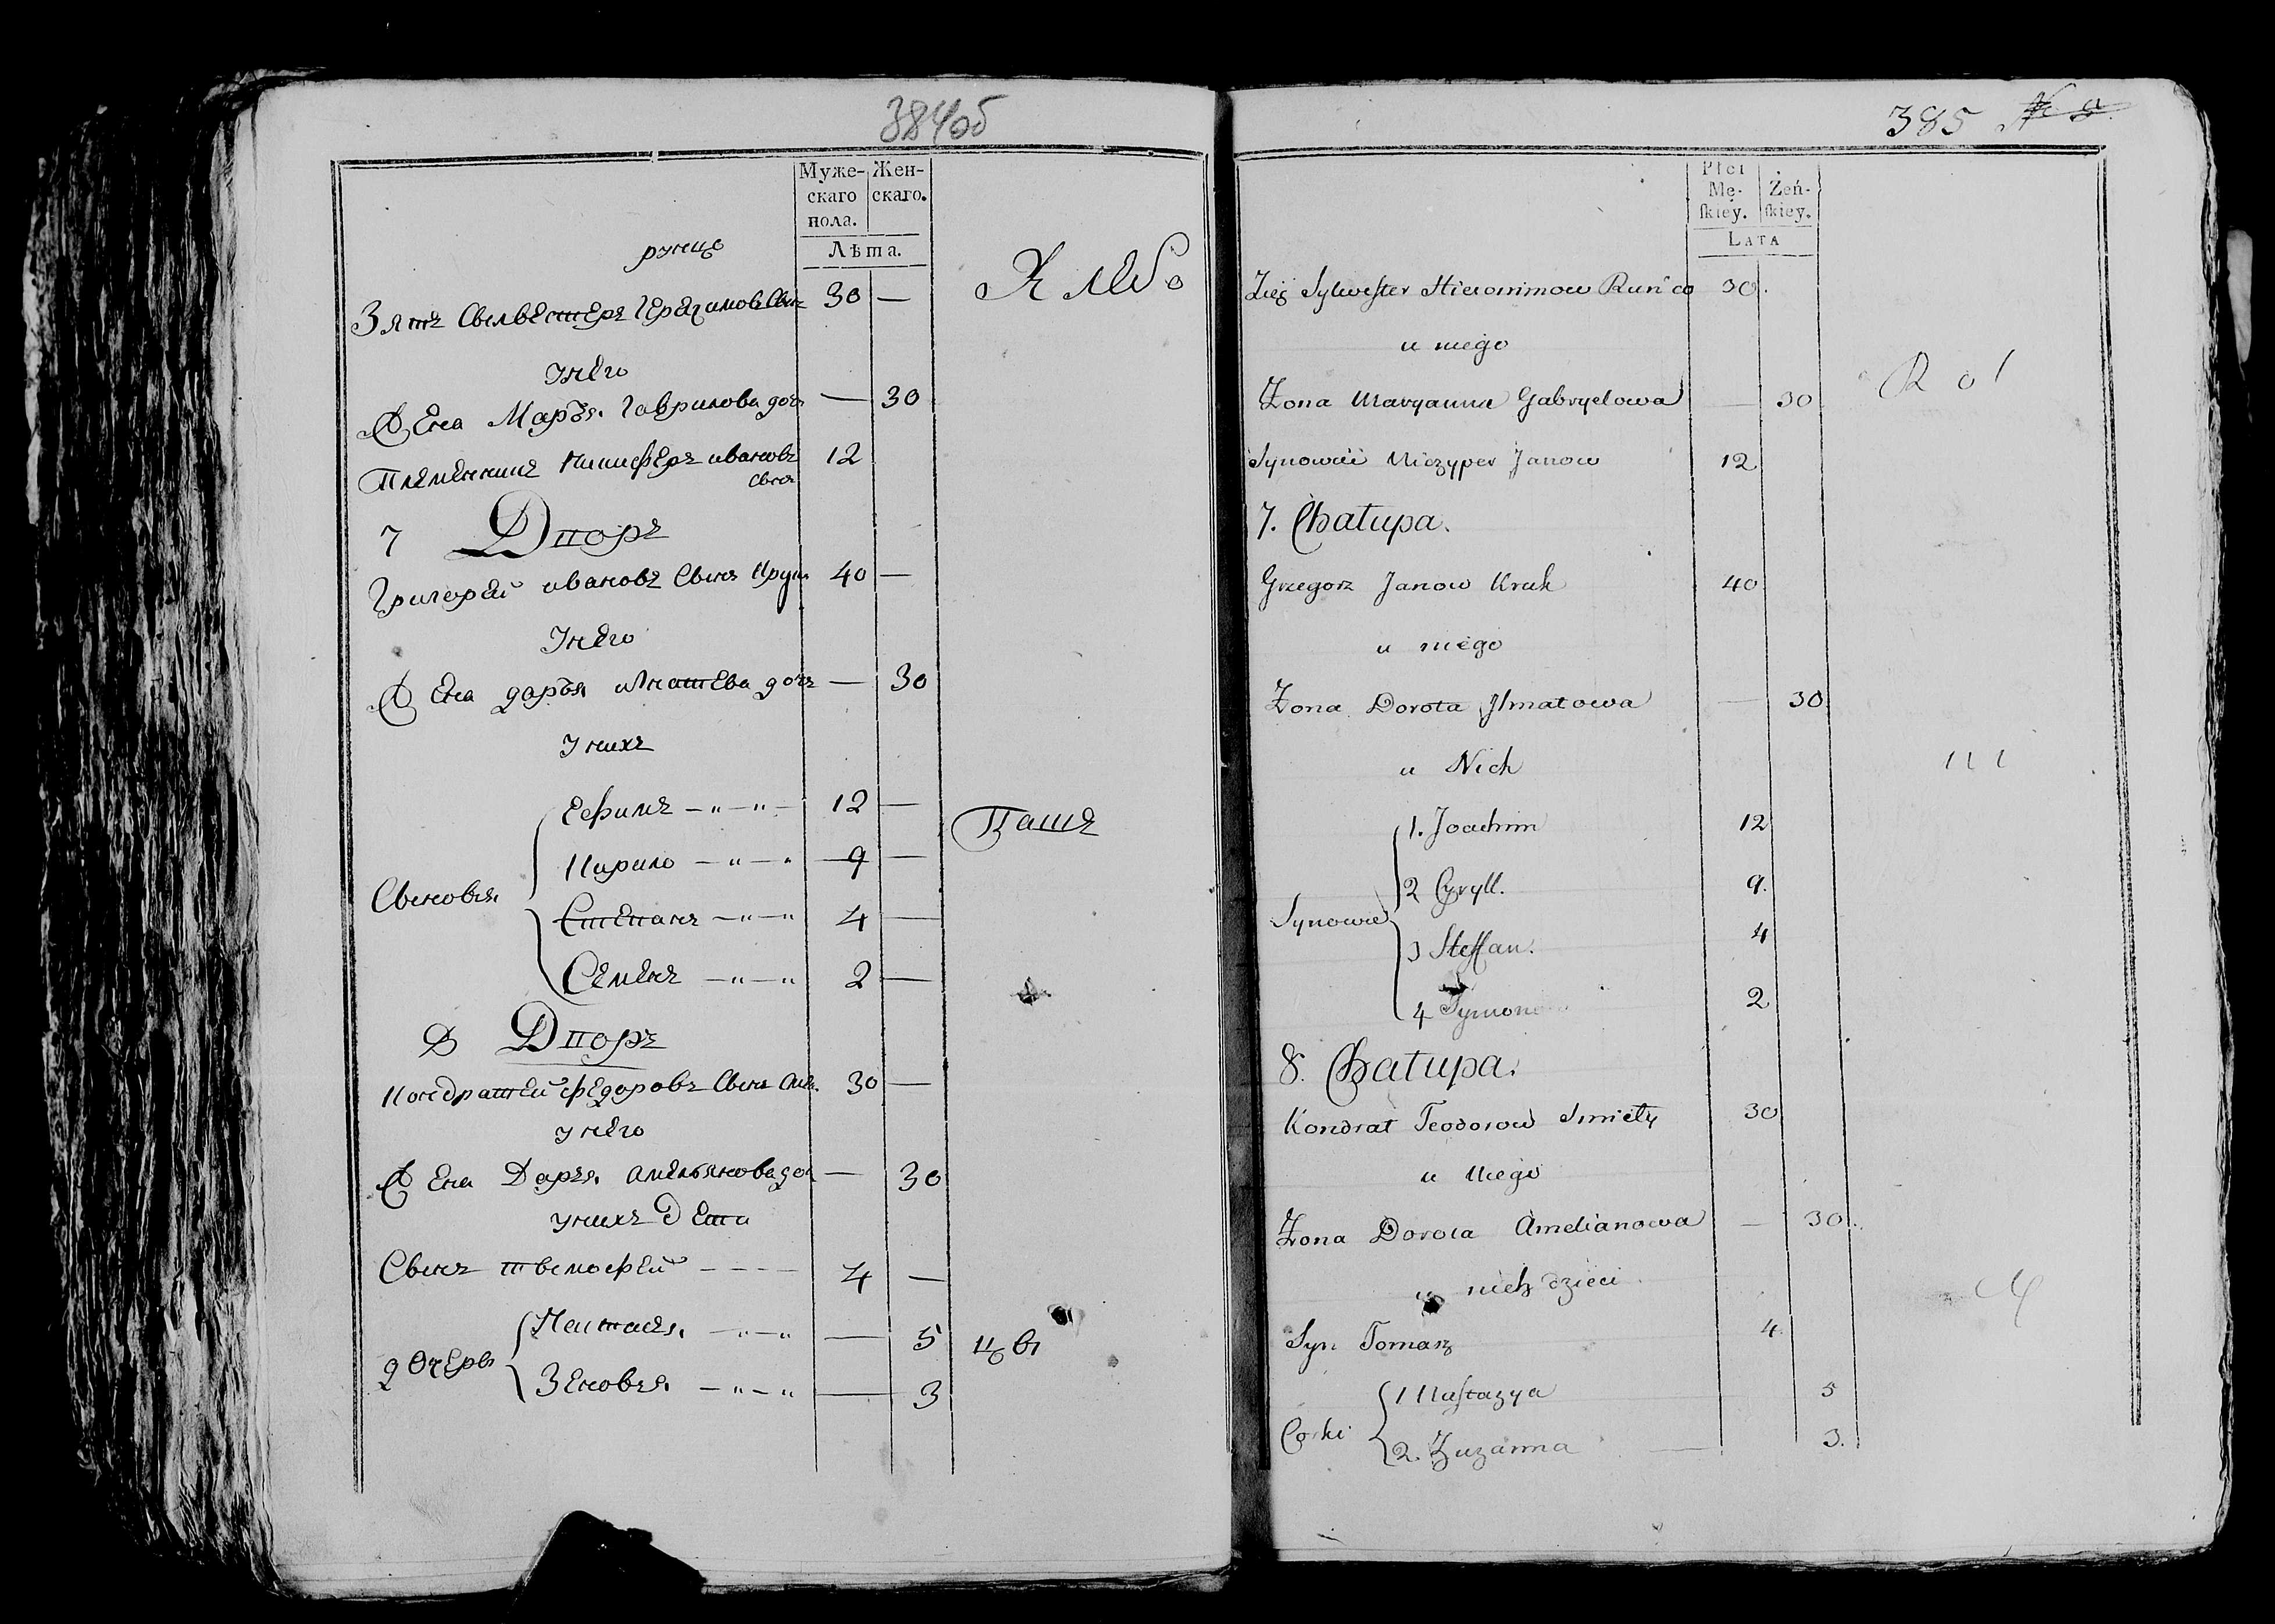 384об
Муже-
скаго
пола.
Жен-
скаго.
Лѣта.
рунцо
Зять Сильвестеръ Герасимовъ Сынъ 30 —
Хлебо
У него
Жена Марья Гаврилова дочь — 30
Племенникъ Ничиферъ ивановъ 12
сынъ
7 Дворъ
Григорей ивановъ Сынъ Крук 40 —
У него
Жена дарья игнатева дочь — 30
У нихъ
Ефимъ — " — " — 12 —
Пашъ
Кирило — " — " 9 —
Сыновья
Степанъ — " — " 4 —
Семенъ — " — " 2 —
8 Дворъ
Кондратей федоровъ Сынъ 30 —
У него
Жена Дарья амельянова доч — 30
У нихъ дети
Сынъ тимофей - - - - 4 —
Настася — " — " — 5
дочери
Зеновья — " — " — 3
цы
385 № 8
Płci
Mę-
ſkiey.
Żeń-
ſkiey.
Lata
Zięć Sylwester Hieronimow Runco 30.
u niego
Żona Maryanna Gabryelowa — 30
Synowiec Niczyper Janow 12
7. Chałupa.
Grzegorz Janow Kruk 40
u niego
Żona Dorota Jlmatowa — 30
u Nich
1. Joachim 12
2 Cyryll. 9.
Synowie
3 Steffan. 4
4 Symon 2
8. Chałupa.
Kondrat Teodorow Smiały 30
u Niego
Żona Dorota Amelianowa — 30.
u nich dzieci
Syn Tomasz 4.
1 Nastazya 5
Corki
2. Zuzanna — 3.